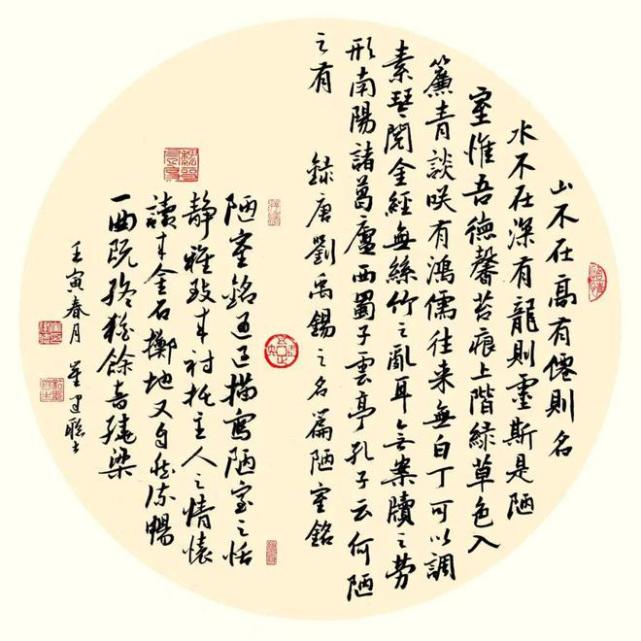 山不在高有僊則名
水不在深有龍則靈斯是陋
室惟吾德馨苔痕上階緑草色入
簾青談咲有鴻儒往来無白丁可以調
素琴閲金經無絲竹之亂耳无案牘之勞
形南陽諸葛廬西蜀子雲亭孔子云何陋
之有 録唐劉禹錫之名篇陋室銘
陋室銘通过描寫陋室之恬
静雅致来衬托主人之情懐
讀来金石擲地又自然流暢
一曲既終猶餘音繞梁
壬寅春月